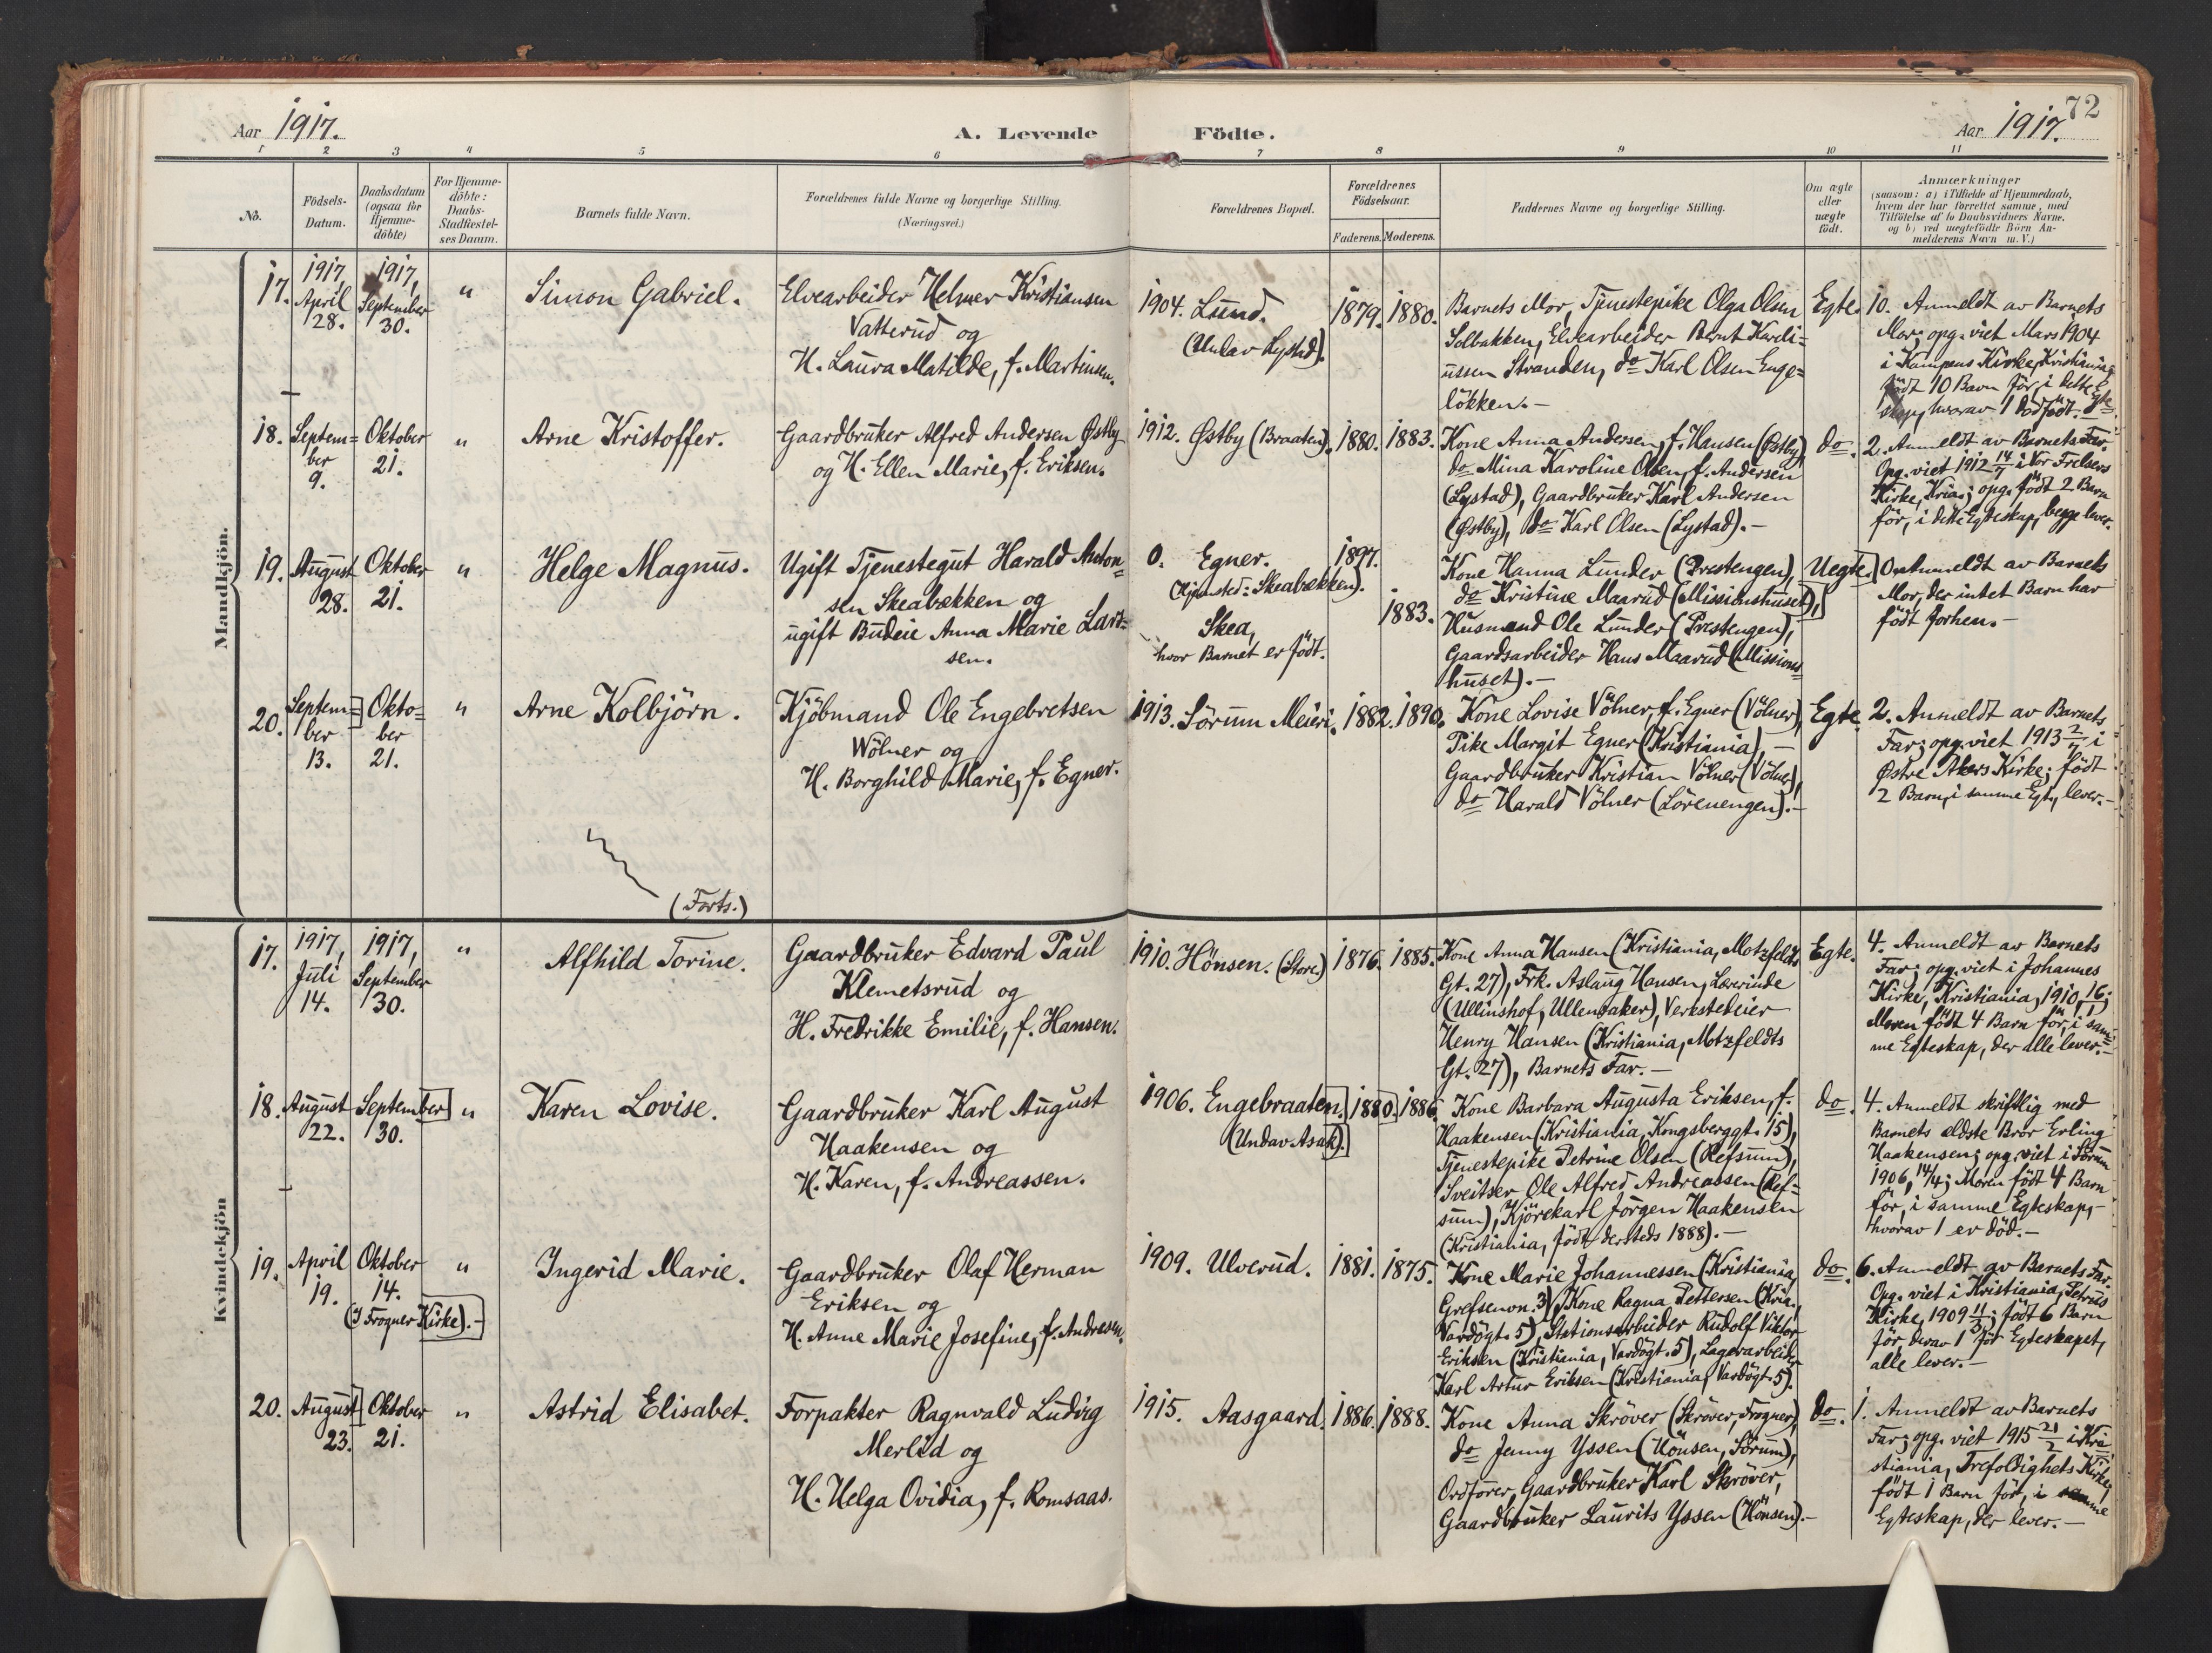 72
Aar 1917. A. Levende Födte. Aar 1917.
1 2 3 4 5 6 7 8 9 10 11
No.
Födsels-
Datum.
Daabsdatum
(ogsaa for
Hjemme-
döbte)
For Hjemme-
döbte:
Daabs-
Stadfæstel-
ses Datum.
Barnets fulde Navn.
Forældrenes fulde Navne og borgerlige Stilling.
(Næringsvei.)
Forældrenes Bopæl.
Forældrenes
Födselsaar.
Faderens. Moderens.
Faddernes Navne og borgerlige Stilling.
Om ægte
eller
uægte
födt.
Anmærkninger
(saasom: a) i Tilfælde af Hjemmedaab,
hvem der har forrettet samme, med
Tilföielse af to Daabsvidners Navne.
og b) ved uægtefödte Börn An-
melderens Navn m. V.)
Mandkjön.
17.
1917,
April
28.
1917,
September
30.
"
Simon Gabriel.
Elvearbeider Helmer Kristiansen
Vatterud og
H. Laura Matilde, f. Martinsen.
1904. Lund.
(Undav Lystad).
1879. 1880.
Barnets Mor, Tjenestepike Olga Olsen
Solbakken, Elvearbeider Bernt Kardi=
ussen Stranden, do Karl Olsen Enge=
lökken.-
Egte.
10. Anmeldt av Barnets
Mor; opg. viet Mars 1904
i Kampens Kirke, Kristiania;
födt 10 Barn för, i dette Egte=
skap, hvorav 1 dödfödt.
18.
Septem=
ber
9.
Oktober
21.
"
Arne Kristoffer.
Gaardbruker Alfred Andersen Østby
og H. Ellen Marie, f. Eriksen.
1912. Østby (Braaten).
1880. 1883.
Kone Anna Andersen, f. Hansen (Østby)
do Mina Karoline Olsen, f. Andersen
(Lystad), Gaardbruker Karl Andersen
(Østby), do Karl Olsen (Lystad).-
do.
2. Anmeldt av Barnets Far.
Opg. viet 1912 14/7 i Vor Frelsers
Kirke, Kria.; opg. födt 2 Barn
för, i dette Egteskap, begge lever.
19.
August
28.
Oktober
21.
"
Helge Magnus.
Ugift Tjenestegut Harald Anton=
sen Skeabækken og
ugift Budeie Anna Marie Lar=
sen.
0. Egner.
(Hjemsted: Skeabækken).
Skea,
hvor Barnet er födt.
1897.
1883.
Kone Hanna Lunder (Prestengen),
do Kristine Maarud (Missionshuset),
Husmand Ole Lunder (Prestengen),
Gaardsarbeider Hans Maarud (Missions=
huset).-
Uegte.
0. Anmeldt av Barnets
Mor, der intet Barn har
födt forhen.-
20.
Septem=
ber
13.
Okto=
ber
21.
"
Arne Kolbjörn.
Kjöbmand Ole Engebretsen
Wölner og
H. Borghild Marie, f. Egner.
1913. Sörum Meieri.
1882. 1890.
Kone Lovise Völner, f. Egner (Völner),
Pike Margit Egner (Kristiania), -
Gaardbruker Kristian Völner (Völner),
do Harald Völner (Lörenengen).-
Egte.
2. Anmeldt av Barnets
Far; opg. viet 1913 2/7 i
Østre Akers Kirke; födt
2 Barn, i samme Egt., lever.-
(Forts.)
Kvindekjön
17.
1917,
Juli
14.
1917,
September
30.
"
Alfhild Torine.
Gaardbruker Edvard Paul
Klemetsrud og
H. Fredrikke Emilie, f. Hansen.
1910. Hönsen. (Store)
1876. 1885.
Kone Anna Hansen (Kristiania, Motzfeldts
Gt. 27), Frk. Aslaug Hansen, Lærerinde
(Ullinshof, Ullensaker), Verkstedeier
Henry Hansen (Kristiania, Motzfeldts
Gt. 27), Barnets Far.-
Egte.
4. Anmeldt av Barnets
Far; opg. viet i Johannes
Kirke, Kristiania, 1910, 16/1;
Moren födt 4 Barn för, i sam=
me Egteskap, der alle lever.-
18.
August
22.
September
30.
"
Karen Lovise.
Gaardbruker Karl August
Haakensen og
H. Karen, f. Andreassen.
1906. Engebraaten.
(Undav Asak).
1880. 1886.
Kone Barbara Augusta Eriksen, f.
Haakensen (Kristiania, Kongsberggt. 15),
Tjenestepike Petrine Olsen (Refsum),
Sveitser Ole Alfred Andreassen (Ref=
sum), Kjörekarl Jörgen Haakensen
(Kristiania, födt dersteds 1888).-
do.
4. Anmeldt skriftlig med
Barnets ældste Bror Erling
Haakensen; opg. viet i Sörum
1906, 14/4; Moren födt 4 Barn
för, i samme Egteskap,-
hvorav 1 er död.-
19.
April
19.
Oktober
14.
(I Frogner Kirke).-
"
Ingerid Marie.
Gaardbruker Olaf Herman
Eriksen og
H. Anne Marie Josefine, f. Andresen.
1909. Ulverud.
1881. 1875.
Kone Marie Johannessen (Kristiania,
Grefsenvn. 3), Kone Ragna Pettersen (Kria.,
Vardögt. 5), Stationsarbeider Rudolf Viktor
Eriksen (Kristiania, Vardögt. 5), Lagerarbeider
Karl Artur Eriksen (Kristiania, Vardögt. 5).
do.
6. Anmeldt av Barnets Far.
Opg. viet i Kristiania, Petrus
Kirke, 1909 11/3; födt 6 Barn
för, derav 1 för Egteskapet,
alle lever.-
20.
August
23.
Oktober
21.
"
Astrid Elisabet.
Forpakter Ragnvald Ludvig
Merlid og
H. Helga Ovidia, f. Romsaas.
1915. Aasgaard.
1886. 1888.
Kone Anna Skröver (Skröver, Frogner),
do Jenny Yssen (Hönsen, Sörum),
Ordförer, Gaardbruker Karl Skröver,
Gaardbruker Laurits Yssen (Hönsen).-
do.
1. Anmeldt av Barnets
Far; opg. viet 1915 21/2 i Kri=
stiania, Trefoldighets Kirke;
födt 1 Barn för, i samme
Egteskap, der lever.-